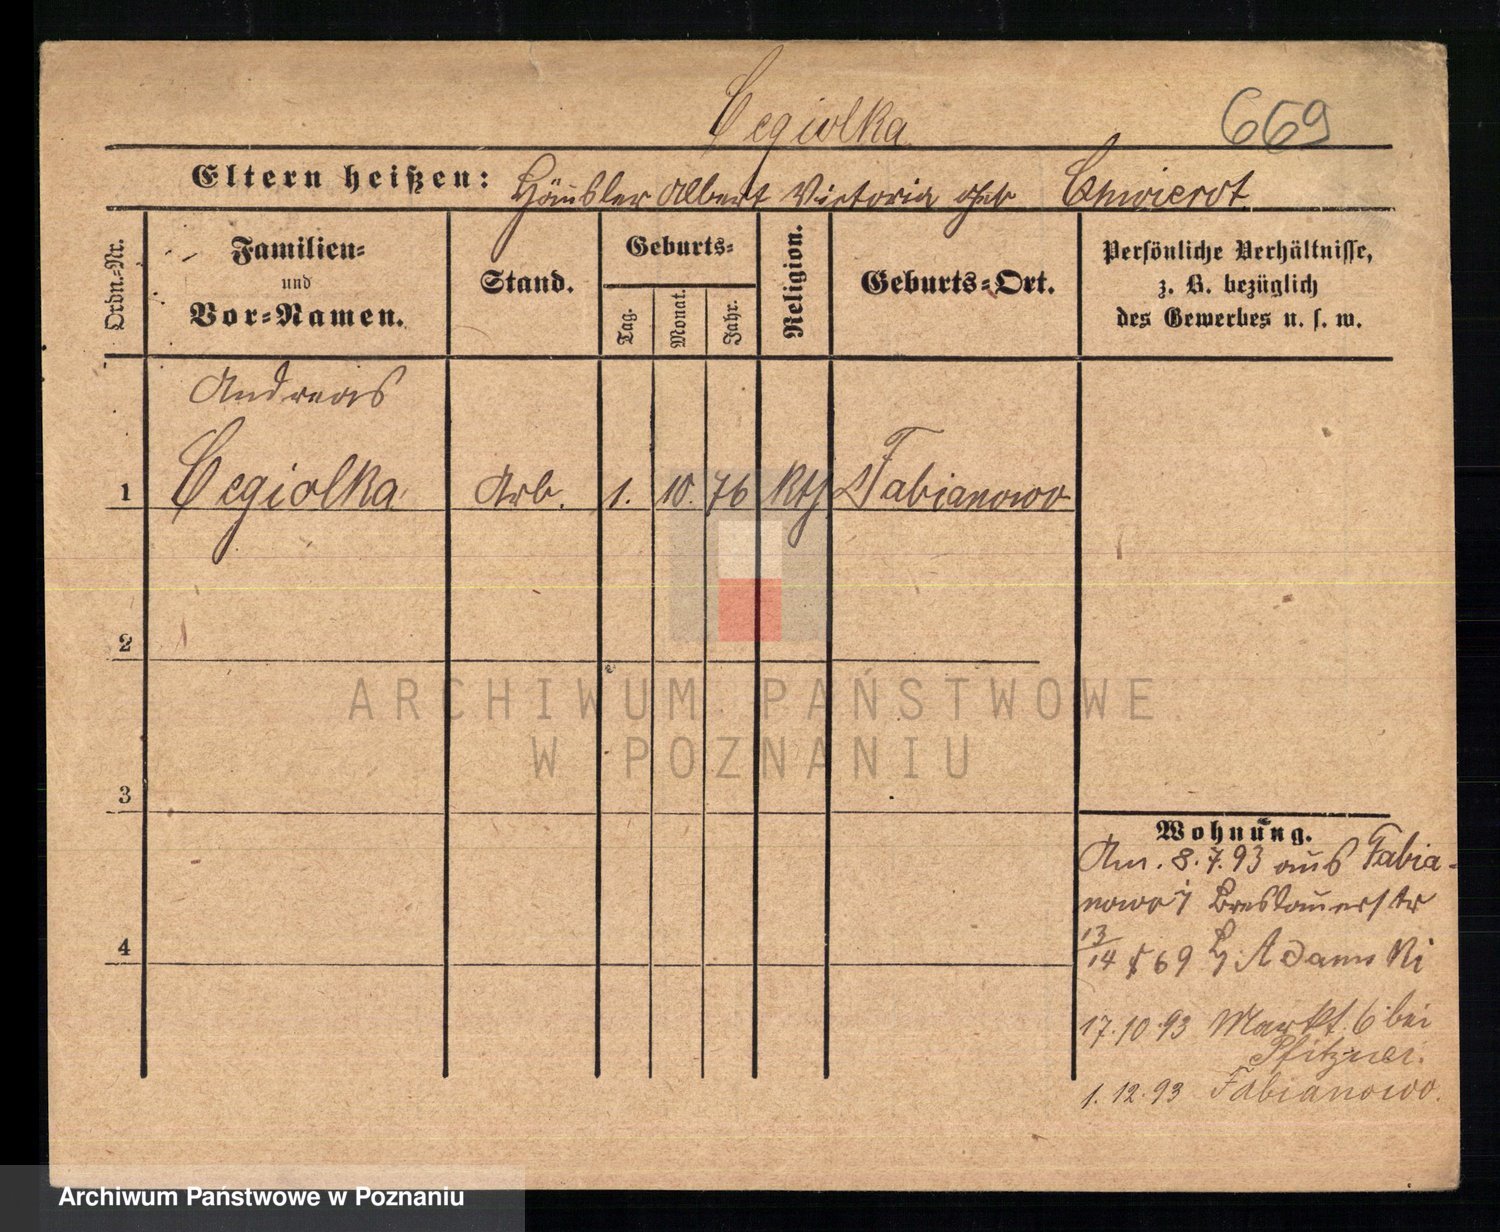 Cegiolka
669
Eltern heißen: Häusler Albert Victoria geb Chwierot
Ordn.-Nr.
Familien-
und
Vor-Namen.
Stand.
Geburts-
Tag.
Monat.
Jahr.
Religion.
Geburts-Ort.
Persönliche Verhältnisse,
z. B. bezüglich
des Gewerbes u. s. w.
Andreas
1 Cegiolka Arb. 1. 10. 76 kth Fabianowo
2
ARCHIWUM PAŃSTWOWE
W POZNANIU
3
Wohnung.
An. 8.7.93 aus Fabia-
nowo i Breslauerstr
13/14 b. Adamski
4
17.10.93 Markt 6 bei
Pfitzner.
1.12.93 Fabianowo.
Archiwum Państwowe w Poznaniu